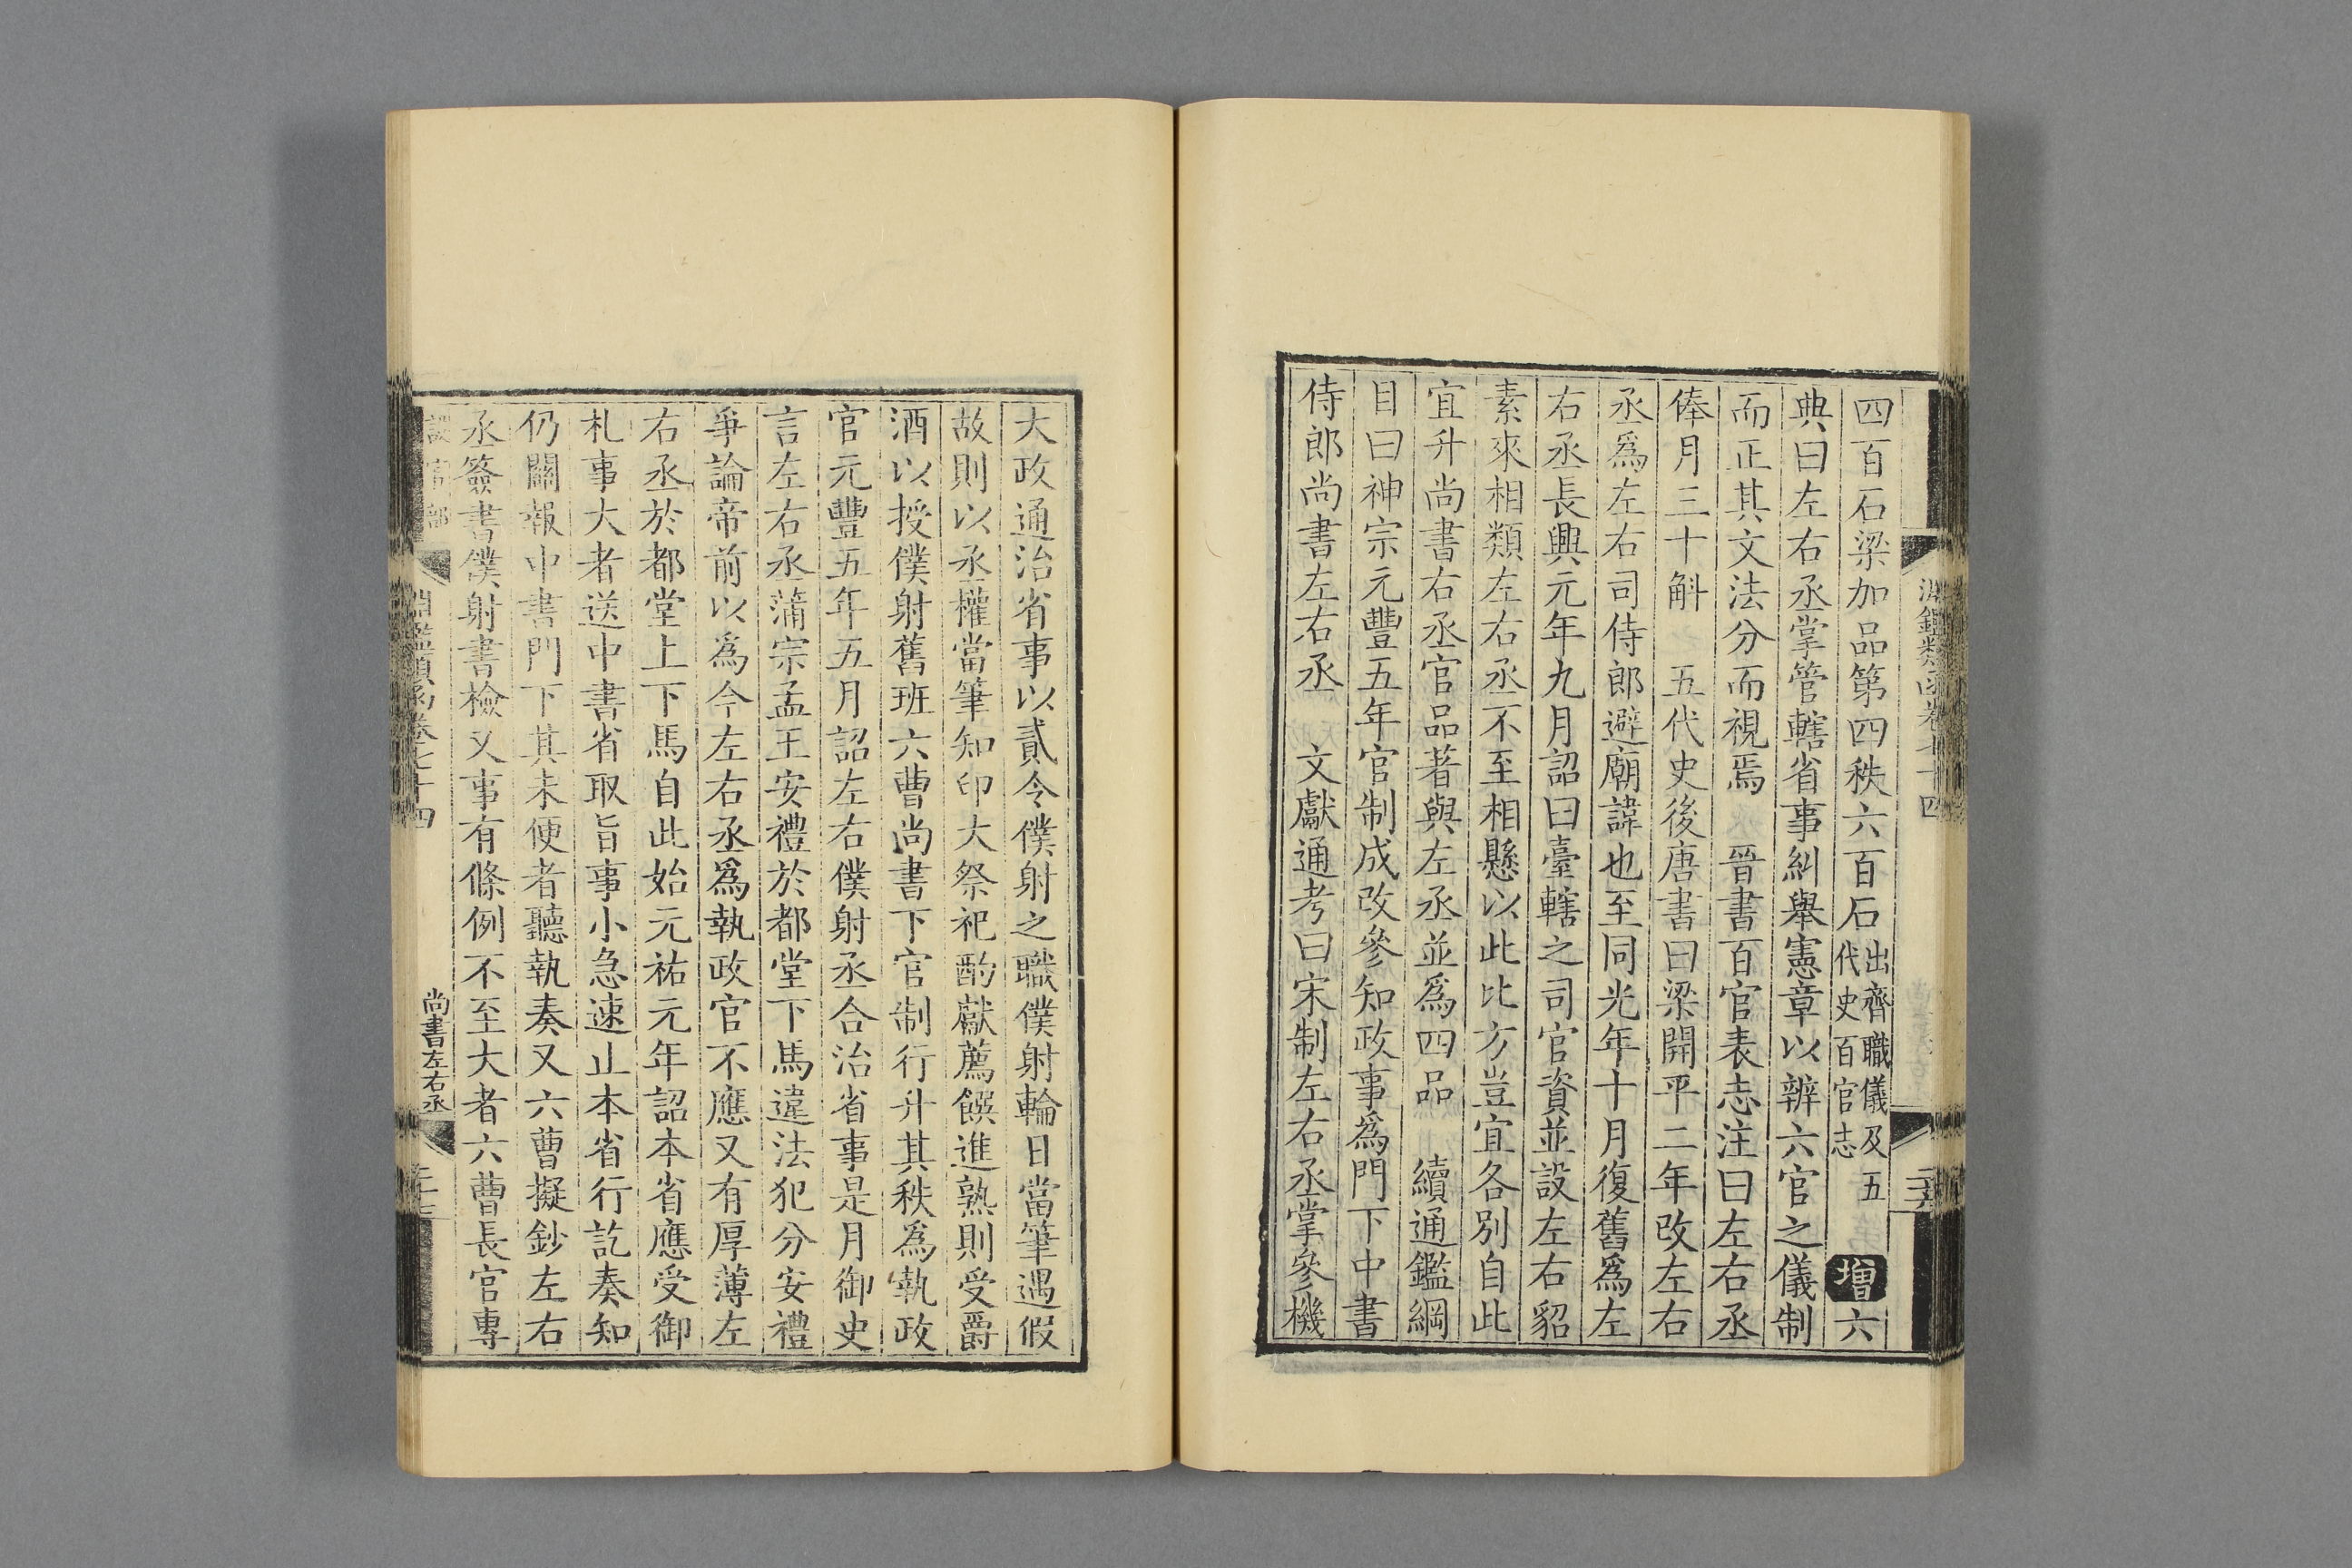 四百石梁加品第四秩六百石出齊職儀及五代史百官志 增六
典曰左右丞掌管轄省事糾舉憲章以辨六官之儀制
而正其文法分而視焉 晉書百官表志注曰左右丞
俸月三十斛 五代史後唐書曰梁開平二年改左右
丞爲左右司侍郎避廟諱也至同光年十月復舊爲左
右丞長興元年九月詔曰臺轄之司官資並設左右貂
素來相類左右丞不至相懸以此比方豈宜各別自此
宜升尚書右丞官品著與左丞並爲四品 續通鑑綱
目曰神宗元豐五年官制成改參知政事爲門下中書
侍郎尚書左右丞 文獻通考曰宋制左右丞掌參機
大政通治省事以貳令僕射之職僕射輪日當筆遇假
故則以丞權當筆知印大祭祀酌獻薦饌進熟則受爵
酒以授僕射舊班六曹尚書下官制行升其秩爲執政
官元豐五年五月詔左右僕射丞合治省事是月御史
言左右丞蒲宗孟王安禮於都堂下馬違法犯分安禮
爭論帝前以爲今左右丞爲執政官不應又有厚薄左
右丞於都堂上下馬自此始元祐元年詔本省應受御
札事大者送中書省取旨事小急速止本省行訖奏知
仍關報中書門下其未便者聽執奏又六曹擬鈔左右
丞簽書僕射書檢又事有條例不至大者六曹長官專
設官部 淵鑑類函卷七十四 尚書左右丞